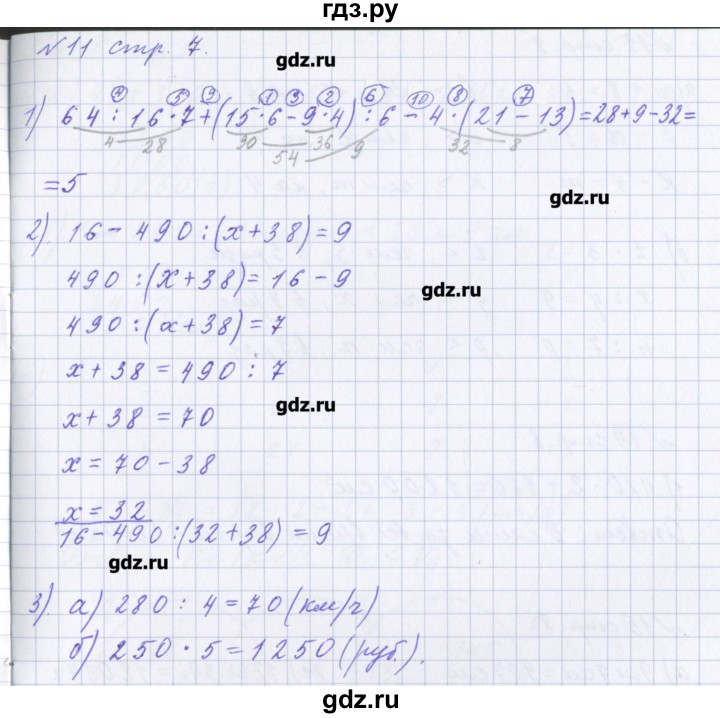 гдз.ру
№11 стр. 7.
gdz.ru
④ ⑤ ⑨ ① ③ ② ⑥ ⑩ ⑧ ⑦
1) 64 : 16 · 7 + (15 · 6 - 9 · 4) : 6 - 4 · (21 - 13) = 28 + 9 - 32 =
4 28 90 54 36 9 32 8
= 5
gdz.ru
2). 16 - 490 : (x + 38) = 9
490 : (x + 38) = 16 - 9
gdz.ru
490 : (x + 38) = 7
x + 38 = 490 : 7
gdz.ru
x + 38 = 70
x = 70 - 38
x = 32
16 - 490 : (32 + 38) = 9
gdz.ru
3). а) 280 : 4 = 70 (км/ч)
б) 250 · 5 = 1250 (руб.).
gdz.ru
gdz.ru